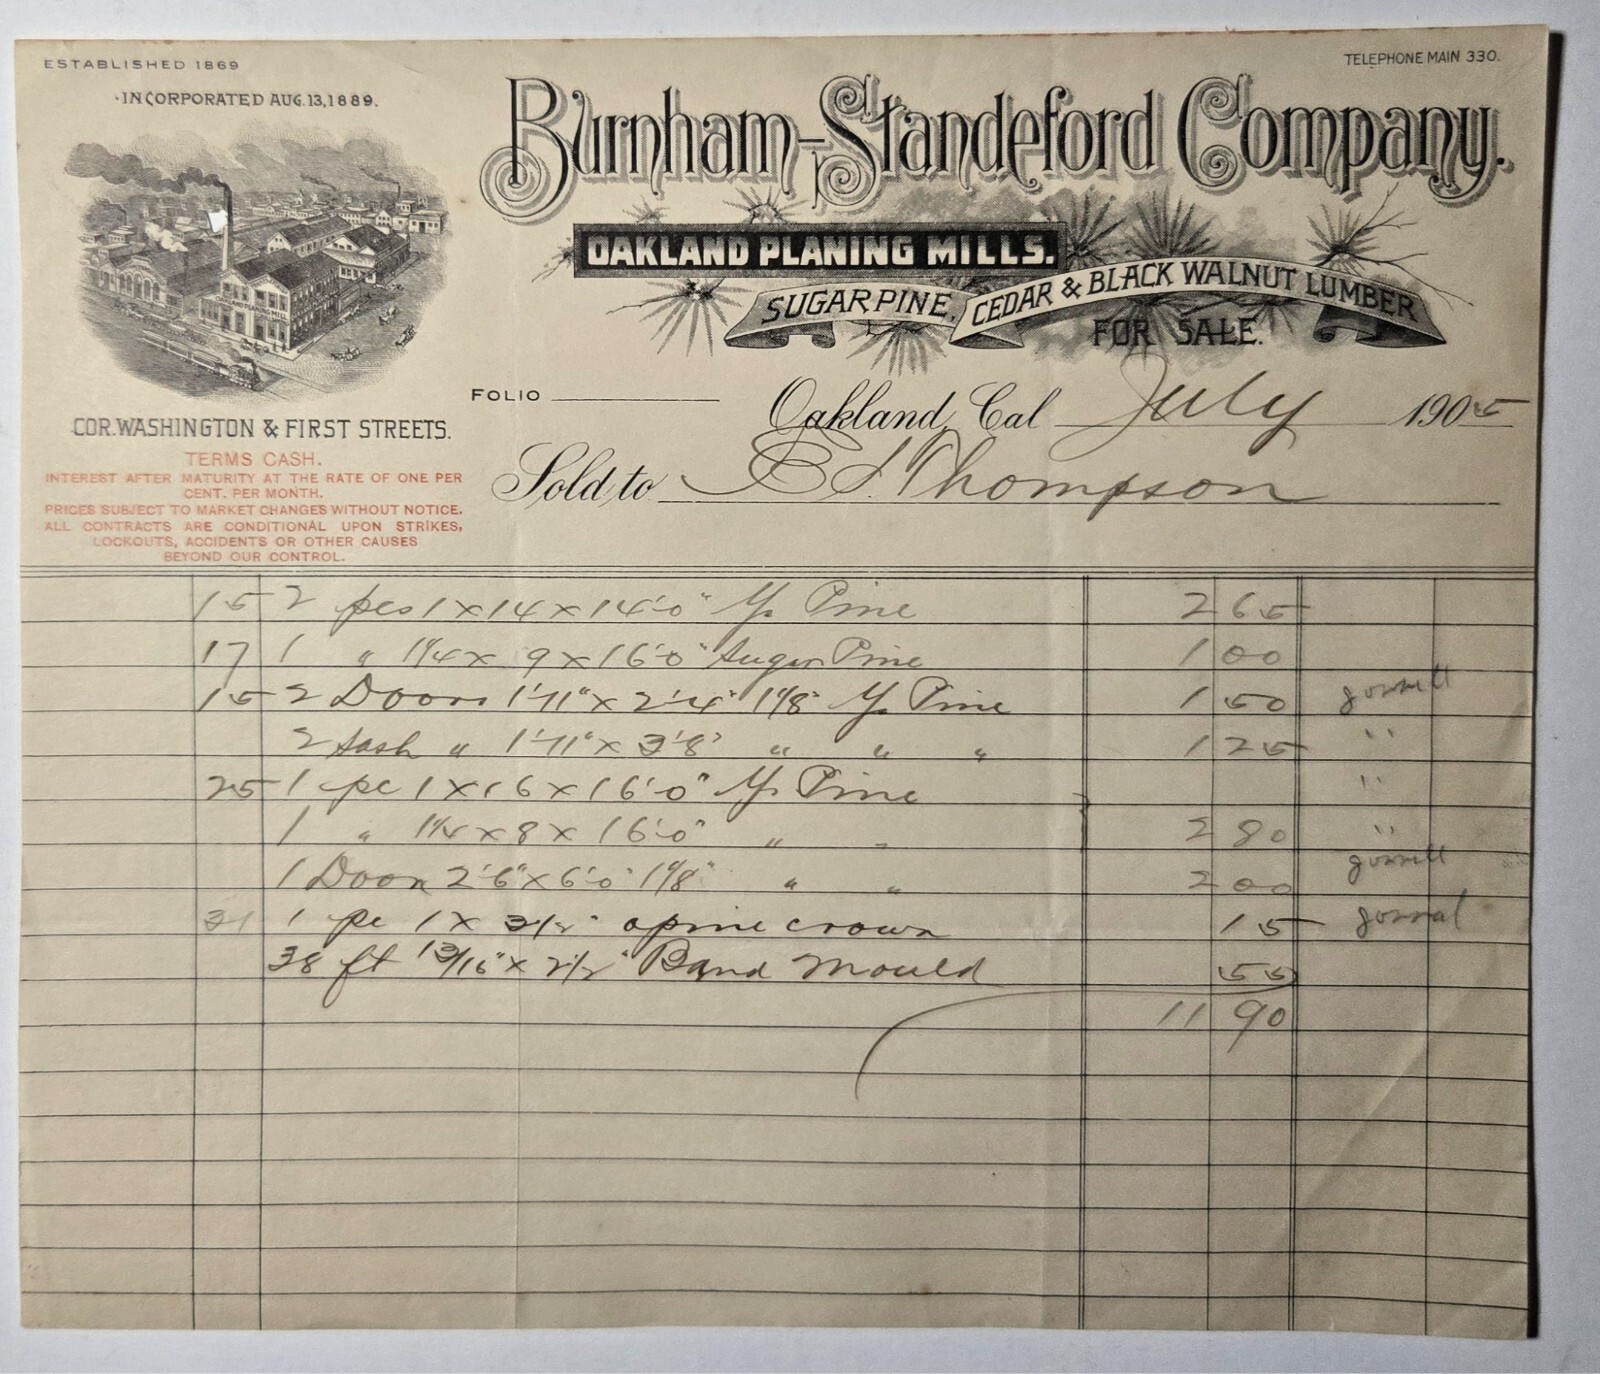 ESTABLISHED 1869
TELEPHONE MAIN 330.
INCORPORATED AUG. 13, 1889.
Burnham-Standeford Company.
OAKLAND PLANING MILLS.
SUGAR PINE, CEDAR & BLACK WALNUT LUMBER
FOR SALE.
FOLIO
COR. WASHINGTON & FIRST STREETS.
Oakland, Cal July 1905
TERMS CASH.
INTEREST AFTER MATURITY AT THE RATE OF ONE PER
CENT. PER MONTH.
PRICES SUBJECT TO MARKET CHANGES WITHOUT NOTICE.
ALL CONTRACTS ARE CONDITIONAL UPON STRIKES,
LOCKOUTS, ACCIDENTS OR OTHER CAUSES
BEYOND OUR CONTROL.
Sold to E S. Thompson
15 2 pcs 1 x 14 x 14'-0" Y. Pine 2 65
17 1 " 1 1/4 x 9 x 16'-0" Sugar Pine 1 00
15 2 Doors 1'-11" x 2'-4" 1 1/8" Y. Pine 1 50
2 Sash " 1'-11" x 3'-8" " " " 1 25 "
25 1 pc 1 x 16 x 16'-0" Y. Pine "
1 " 1 1/4 x 8 x 16'-0" " " 2 80 "
1 Door 2'-6" x 6'-0" 1 1/8" " " 2 00
31 1 pc 1 x 3 1/2" opine crown 15
38 ft 13/16" x 2 1/2" Band Mould 55
11 90